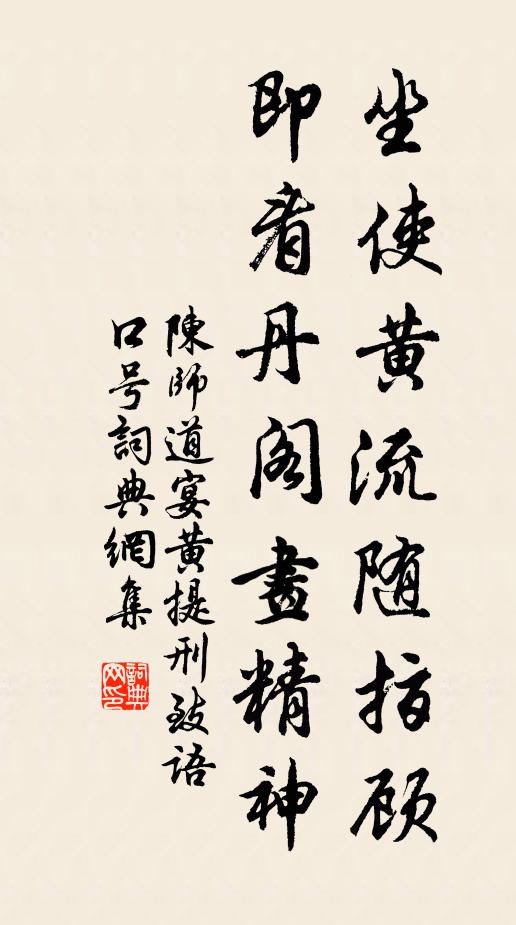 坐使黄流随指顾
即看丹阁畫精神
陳師道宴黄提刑致語
口号詞典網集
詞典网印